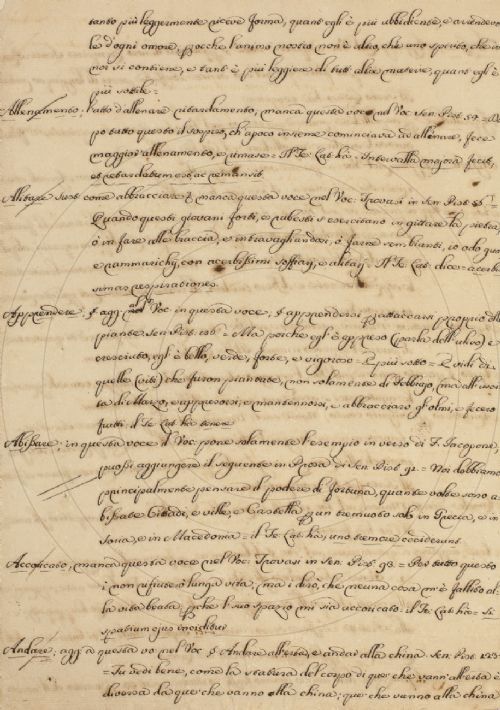 tanto più leggermente riceve forma, quant'egli è più ubbidiente, e arrendevo
le d'ogni omore, poeche l'animo nostro non è altro, che uno spirito, che in
noi si contiene, e tant'è più leggiere di tutt'altre materie, quant'egli è
più sottile.
Allenamento: l'atto d'allenare ritardamento, manca questa voce nel Voc. Sen. Pist. 54. = Do
po tutto questo il sospiro, ch'apoco insieme cominciava ad allenare, fece
maggior'allenamento, e rimase = Il Te. Lat. hà. Intervalla majora fecit,
et retardatum est ac remansit.
Alitare sust. come abbracciare manca questa voce nel Voc: Trovasi in Sen. Pist. 56. =
Quando questi giovani forti, e rubesti s'esercitano in gittare la pietra,
ò in fare alle braccia, e intravagliandosi, ò farne sembianti, io odo guai
e rammarichij, con acerbissimi soffiari, e alitari = Il Te. Lat. dice: acerbis
simas respirationes.
Apprendere: agg. nel Voc in questa voce, apprendersi attaccarsi proprio delle
piante Sen. Pist. = Ma poiche egl'è appreso (parla dell'ulivo) e
cresciuto, egl'è bello, verde, forte, e vigoroso = E più sotto = E vidi di
quelle (viti) che furon piantate, non solamente di Febbraio, ma all'usci
ta di Marzo, e appresersi, e mantennorsi, e abbracciaro gl'olmi, e fecero
frutti il Te. Lat. hà tenere
Abissare: in questa voce il Voc. pone solamente l'esempio in verso di F. Iacopone,
puossi aggiungere il seguente in Prosa di Sen. Pist. 91. = Noi dobbiamo
principalmente pensare il podere di fortuna, quante volte sono a
bissate Cittadi, e ville, e Castella un tremuoto solo in Grecia, e in
Soria, e in Macedonia = il Te. Lat. hà, uno tremore occiderunt.
Accorciato; manca questa voce nel Voc: Trovasi in Sen. Pist. 93. = Per tutto questo
i non rifiuterò lunga vita, ma i dirò, che neuna cosa m'è fallito alla
la vita beata, perche l suo spazio mi sia accorciato. il Te. Lat. hà = si
spatium ejus inciditur
Andare; agg. a questa vo nel Voc. Andare all'erta, e andar alla china. Sen. Pist. 123.
= Tu vedi bene, come la statura del corpo di quei che vann'all'erta è
diversa da quei che vanno alla china; quei che vanno alla china